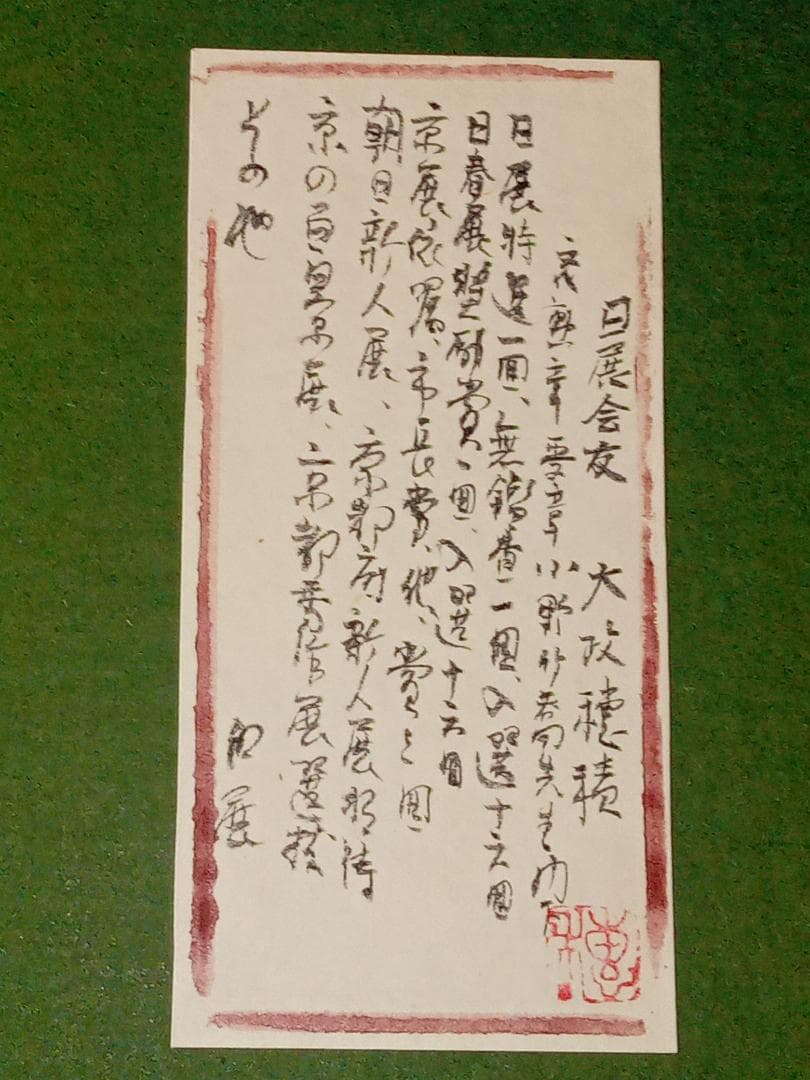 日展会友 大阪穂積
文化勲章受章 小野竹喬先生
日展特選一回、無鑑査一回、入選十六回
日春展奨励賞一回、入選十六回
京展依嘱、市長賞、他、賞 回
朝日新人展、京都府新人展招待
京の百景展、京都 展選抜
その他 個展